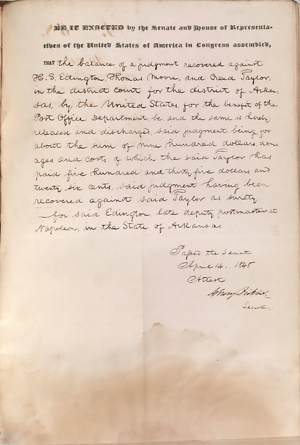 BE IT ENACTED by the Senate and House of Representa-
tives of the United States of America in Congress assembled,
THAT the balance of a judgment recovered against
H. S. Edington Thomas Moore, and Creed Taylor,
in the district court for the district of Arkan
sas, by the United States for the benefit of the
Post Office Department be and the same is hereby
released and discharged, said judgment being for
about the sum of nine hundred dollars dam
ages and costs of which the said Taylor has
paid five hundred and thirty five dollars and
twenty six cents, said judgment having been
recovered against said Taylor as surety
for said Edington late deputy postmaster at
Napoleon, in the State of Arkansas
Passed the Senate
April 14. 1848
Attest